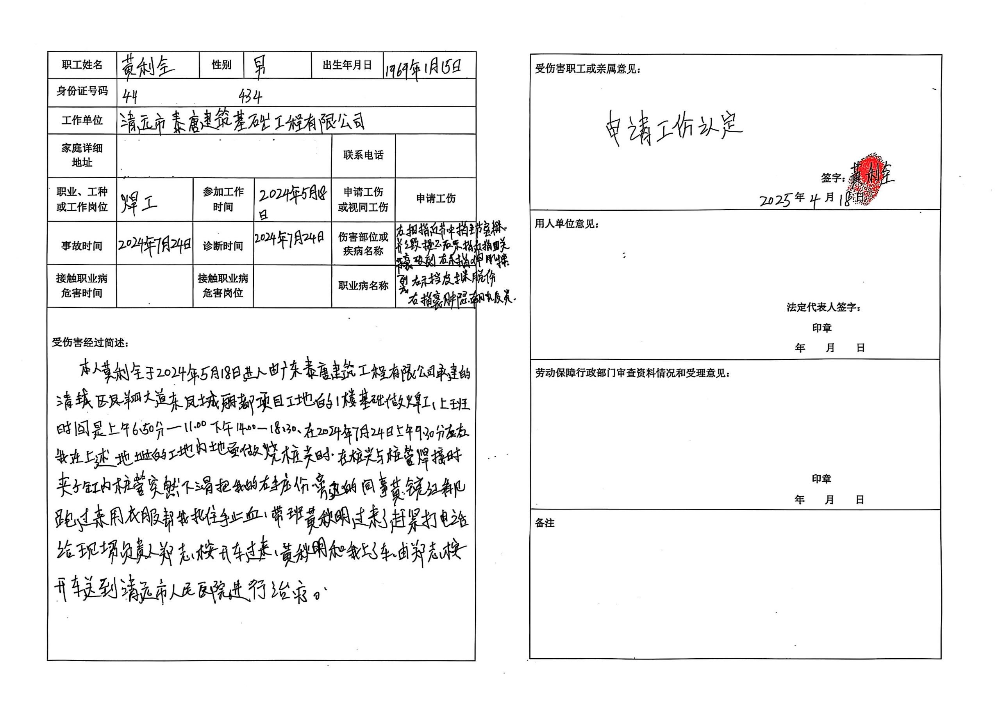 职工姓名 黄利全 性别 男 出生年月日 1969年1月15日
身份证号码 44 434
工作单位 清远市泰唐建筑基础工程有限公司
家庭详细地址 联系电话
职业、工种或工作岗位 焊工 参加工作时间 2024年5月18日 申请工伤或视同工伤 申请工伤
事故时间 2024年7月24日 诊断时间 2024年7月24日 伤害部位或疾病名称
接触职业病危害时间 接触职业病危害岗位 职业病名称
受伤害经过简述:
本人黄利全于2024年5月18日进入由广东泰唐建筑工程有限公司承建的
清城区凤翔大道东凤城丽都项目工地的1楼基础做焊工,上班
时间是上午6:50分—11:00下午14:00—18:30、在2024年7月24日上午9:30分左右
我在上述地址的工地内地面做烧桩尖时.在桩尖与桩管焊接时
夹子缸内桩管突然下滑把我的右手压伤.旁边的同事黄镜红看见
跑过来用衣服帮我扎住手止血,带班黄秋明过来了赶紧打电话
给现场负责人郑志,开车过来,黄秋明和我上了车,由郑志
开车送到清远市人民医院进行治疗。
受伤害职工或亲属意见:
申请工伤认定
签字:黄利全
2025年4月18日
用人单位意见:
法定代表人签字:
印章
年 月 日
劳动保障行政部门审查资料情况和受理意见:
印章
年 月 日
备注